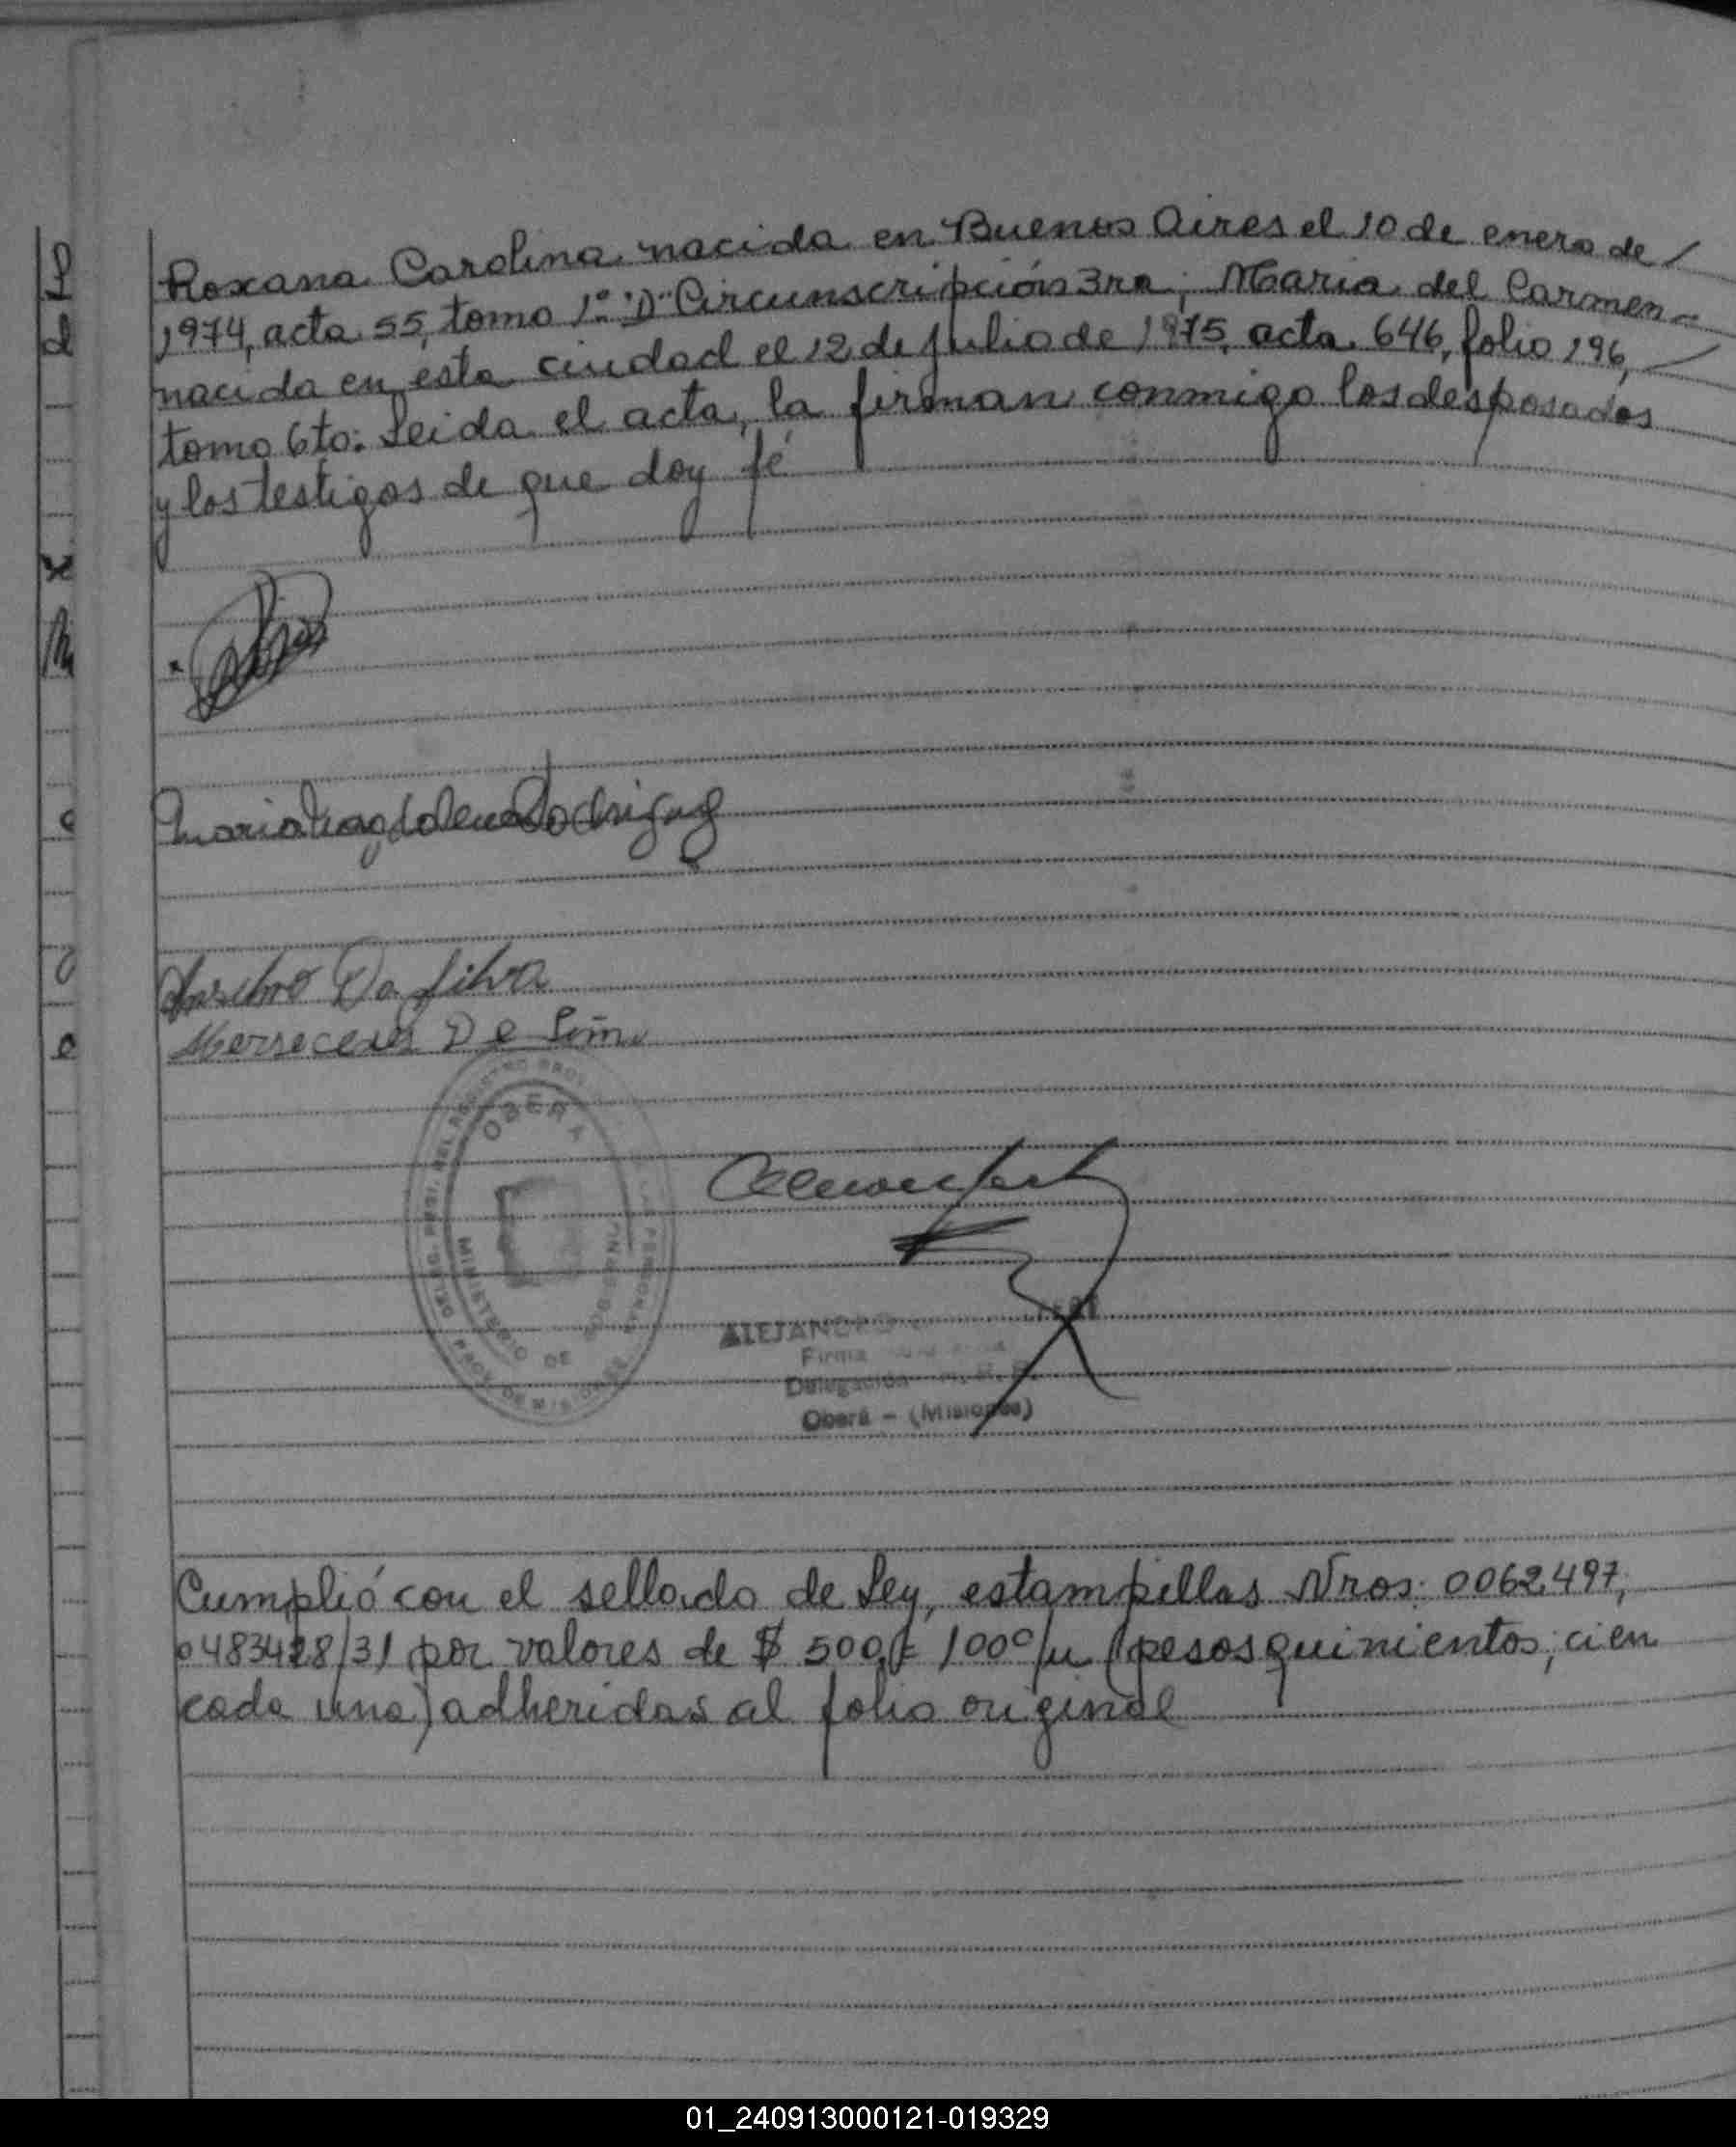 Roxana Carolina nacida en Buenos Aires el 10 de enero de /
1974, acta 55, tomo 1º "D" Circunscripción 3ra; Maria del Carmen -
nacida en esta ciudad el 12 de julio de 1975, acta 646, folio 196, /
tomo 6to: Leida el acta, la firman conmigo los desposados
y los testigos de que doy fé
Maria Magdalena Rodriguez
Da Silva
De Lima
OBERA
MINISTERIO DE
PROV. DE MISIONES
ALEJANDRO
Firma
Delegación
Oberá - (Misiones)
Cumplió con el sellado de Ley, estampillas Nros: 0062497,
0483428/31 por valores de $ 500,= 100º/u (pesos quinientos; cien
cada una) adheridas al folio original
01_240913000121-019329